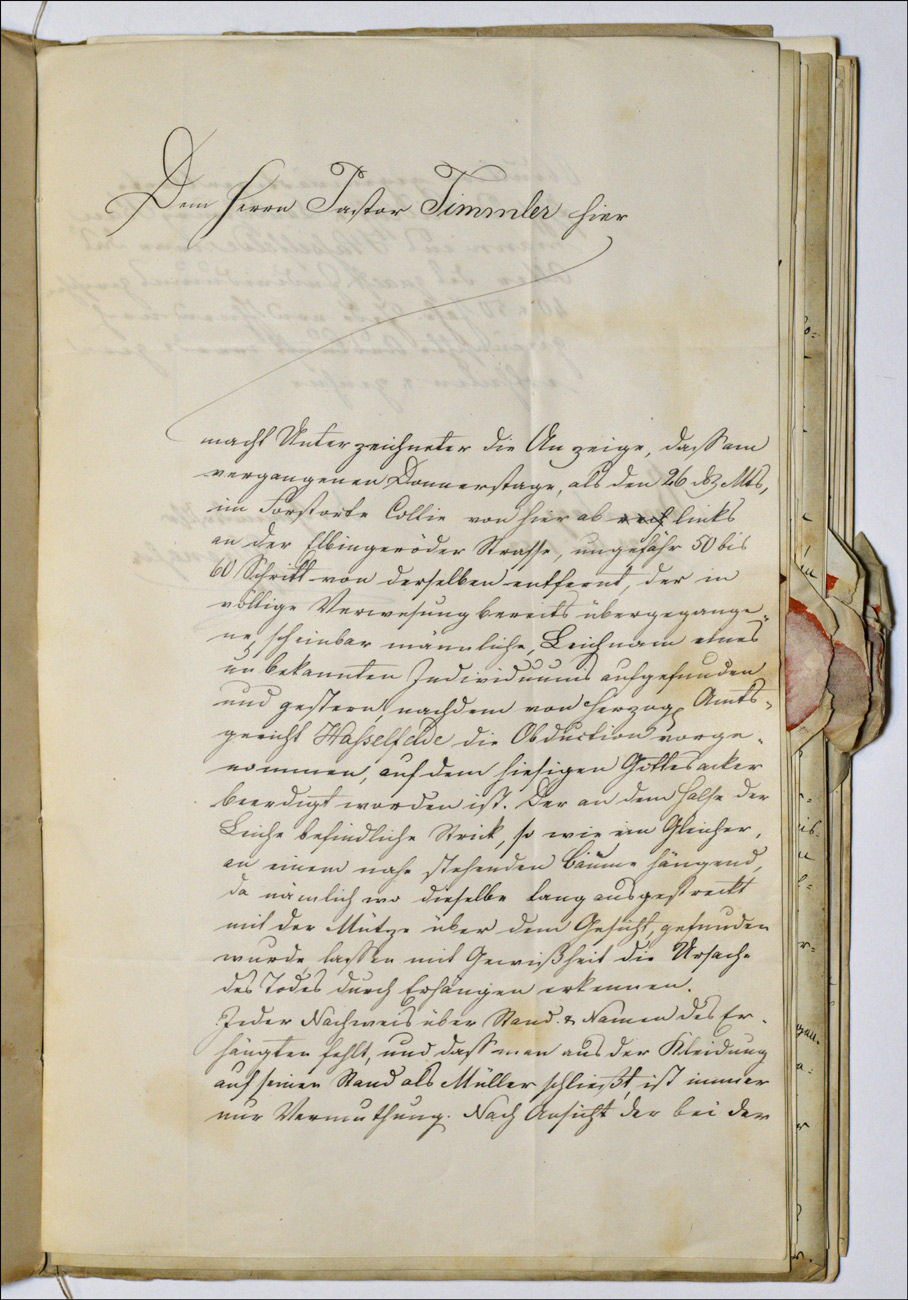 Dem Herrn Pastor Timmler hier
macht Unterzeichneter die Anzeige, dass am
vergangenen Donnerstage, als den 26 ds. Mts,
im Forstorte Collie von hier ab links
an der Elbingeröder Strasse, ungefähr 50 bis
60 Schritt von derselben entfernt, der in
völlige Verwesung bereits übergegange„
ne, scheinbar männliche, Leichnam eines
unbekannten Individuums aufgefunden
und gestern, nachdem von Herzog. Amts„
gericht Hasselfelde die Obduction vorge„
nommen, auf dem hiesigen Gottesacker
beerdigt worden ist. Der an dem Halse der
Leiche befindliche Strick, so wie ein Gleicher,
an einem nahe stehenden Baume hängend,
da nämlich wo dieselbe lang ausgestreckt
mit der Mütze über dem Gesicht, gefunden
wurde lassen mit Gewißheit die Ursache
des Todes durch Erhängen erkennen.
Jeder Nachweis über Stand & Namen des Er„
hängten fehlt, und dass man aus der Kleidung
auf seinen Stand als Müller schließt, ist immer
nur Vermuthung. Nach Ansicht der bei der